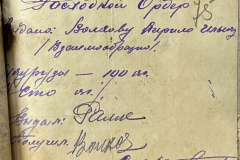 Расходной Ордер
Выдано: Волкову Кирилу
/Взаимообразно/.
Кукурузы – 100 кг.
Сто кг.
Выдал:
Получил: Волков